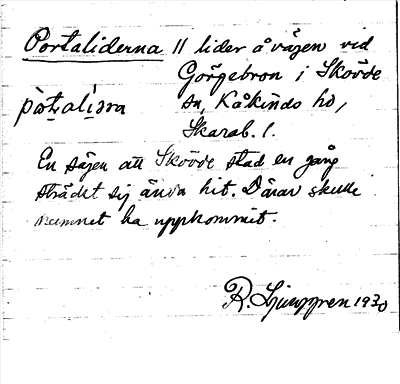 Portaliderna 11 lider å vägen vid
Görgebron i Skövde
pò̀tali̱dra sn, Kåkinds hd,
Skarab. l.
En sägen att Skövde stad en gång
sträckt sig ända hit. Därav skulle
namnet ha uppkommit.
R. Ljunggren 1930